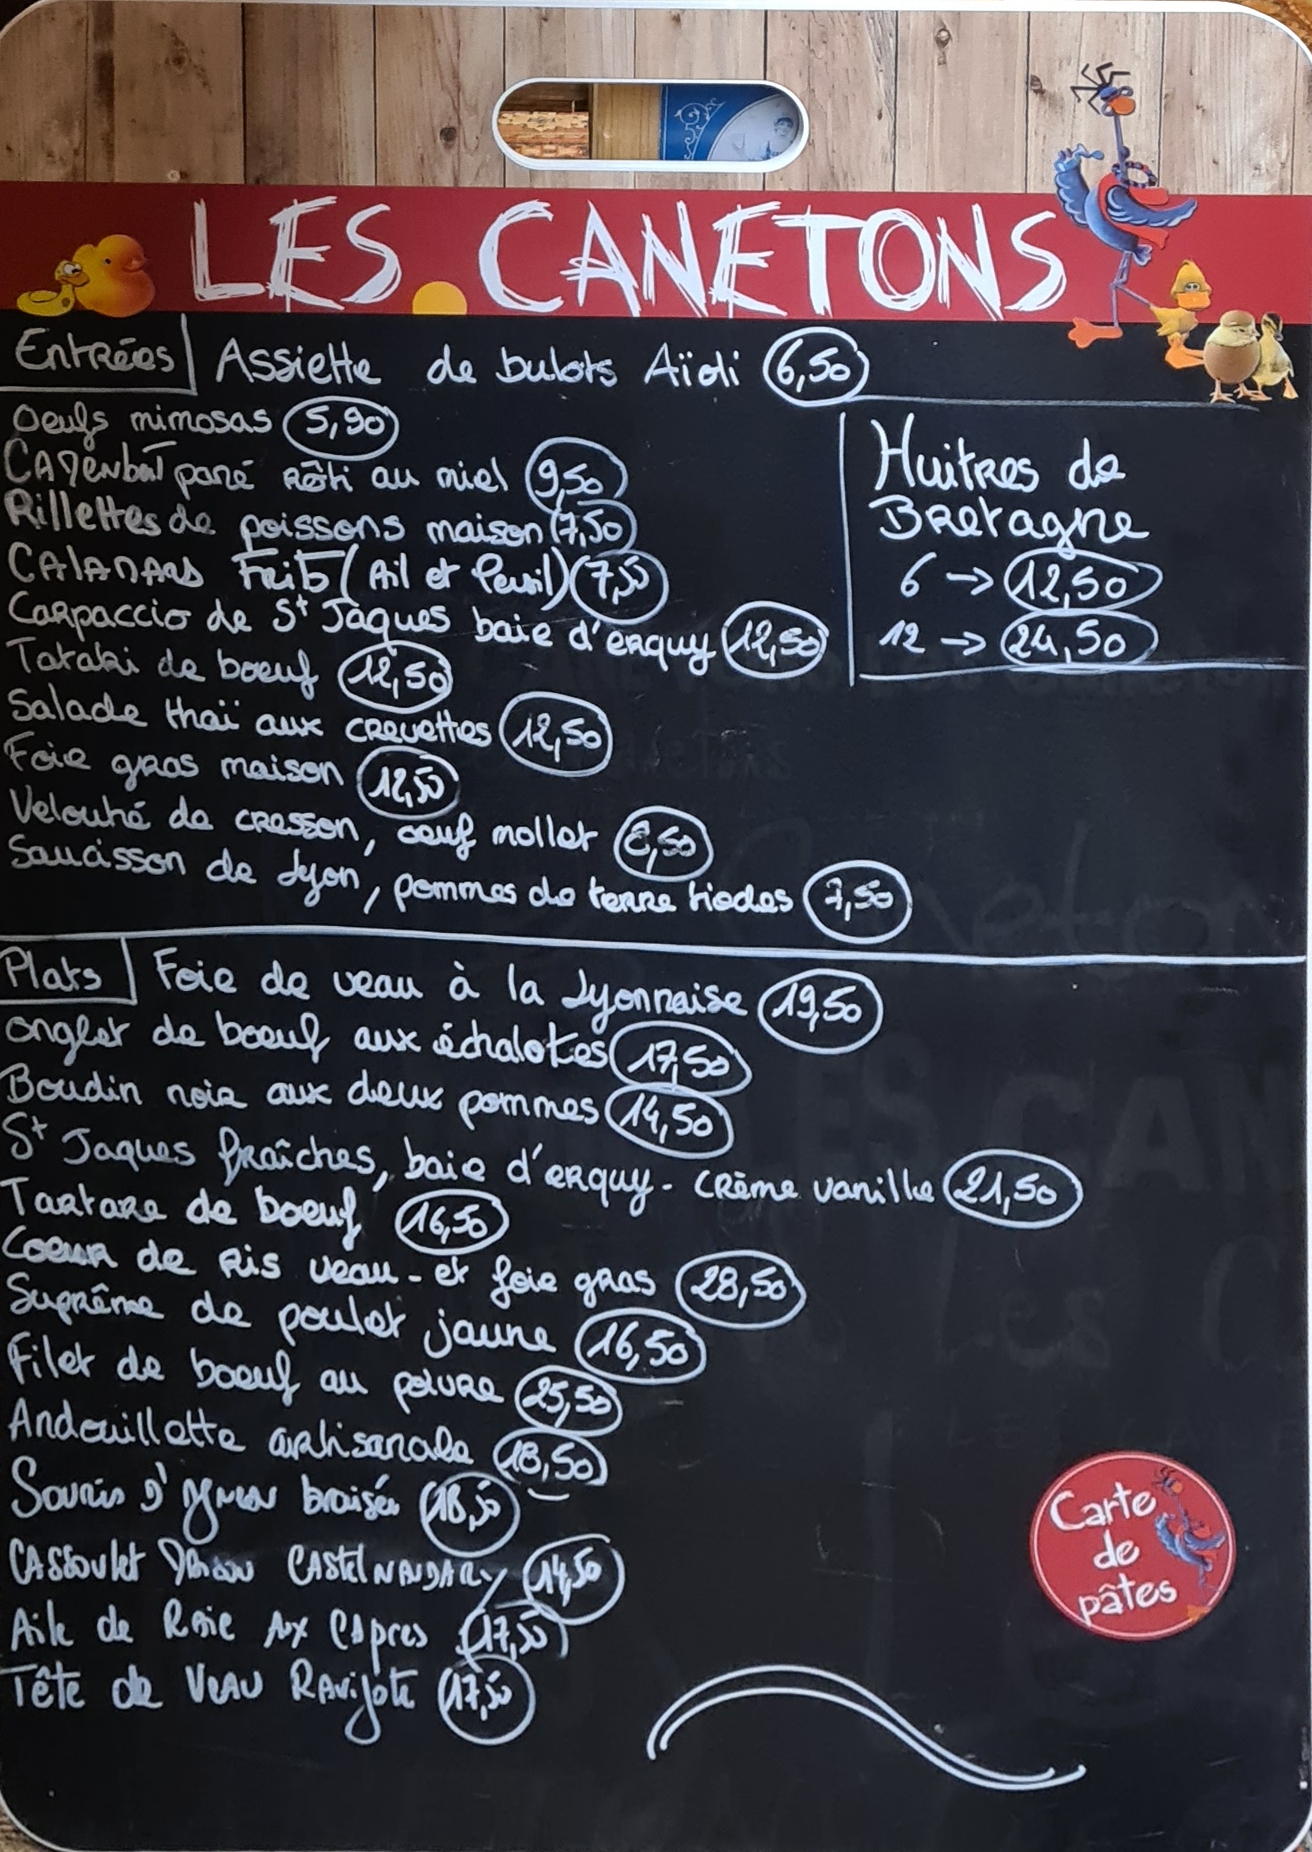 LES CANETONS
Entrées Assiette de bulots Aïoli 6,50
Oeufs mimosas 5,90
Camembert pané rôti au miel 9,50
Rillettes de poissons maison 7,50
Calamars Frits (Ail et Persil) 7,50
Carpaccio de St Jaques baie d'erquy 12,50
Tataki de boeuf 12,50
Salade thaï aux crevettes 12,50
Foie gras maison 12,50
Velouté de cresson, oeuf mollet 8,50
Saucisson de Lyon, pommes de terre tiedes 7,50
Huitres de
Bretagne
6 → 12,50
12 → 24,50
Plats Foie de veau à la Lyonnaise 19,50
onglet de boeuf aux échalotes 17,50
Boudin noir aux deux pommes 14,50
St Jaques fraîches, baie d'erquy - crème vanille 21,50
Tartare de boeuf 16,50
Coeur de Ris veau - et foie gras 28,50
Suprême de poulet jaune 16,50
Filet de boeuf au poivre 25,50
Andouillette artisanale 18,50
Souris d'Agneau braisée 18,50
Cassoulet Maison Castelnaudary 14,50
Aile de Raie Aux Capres 17,50
Tête de Veau Ravigote 17,50
Carte
de
pâtes